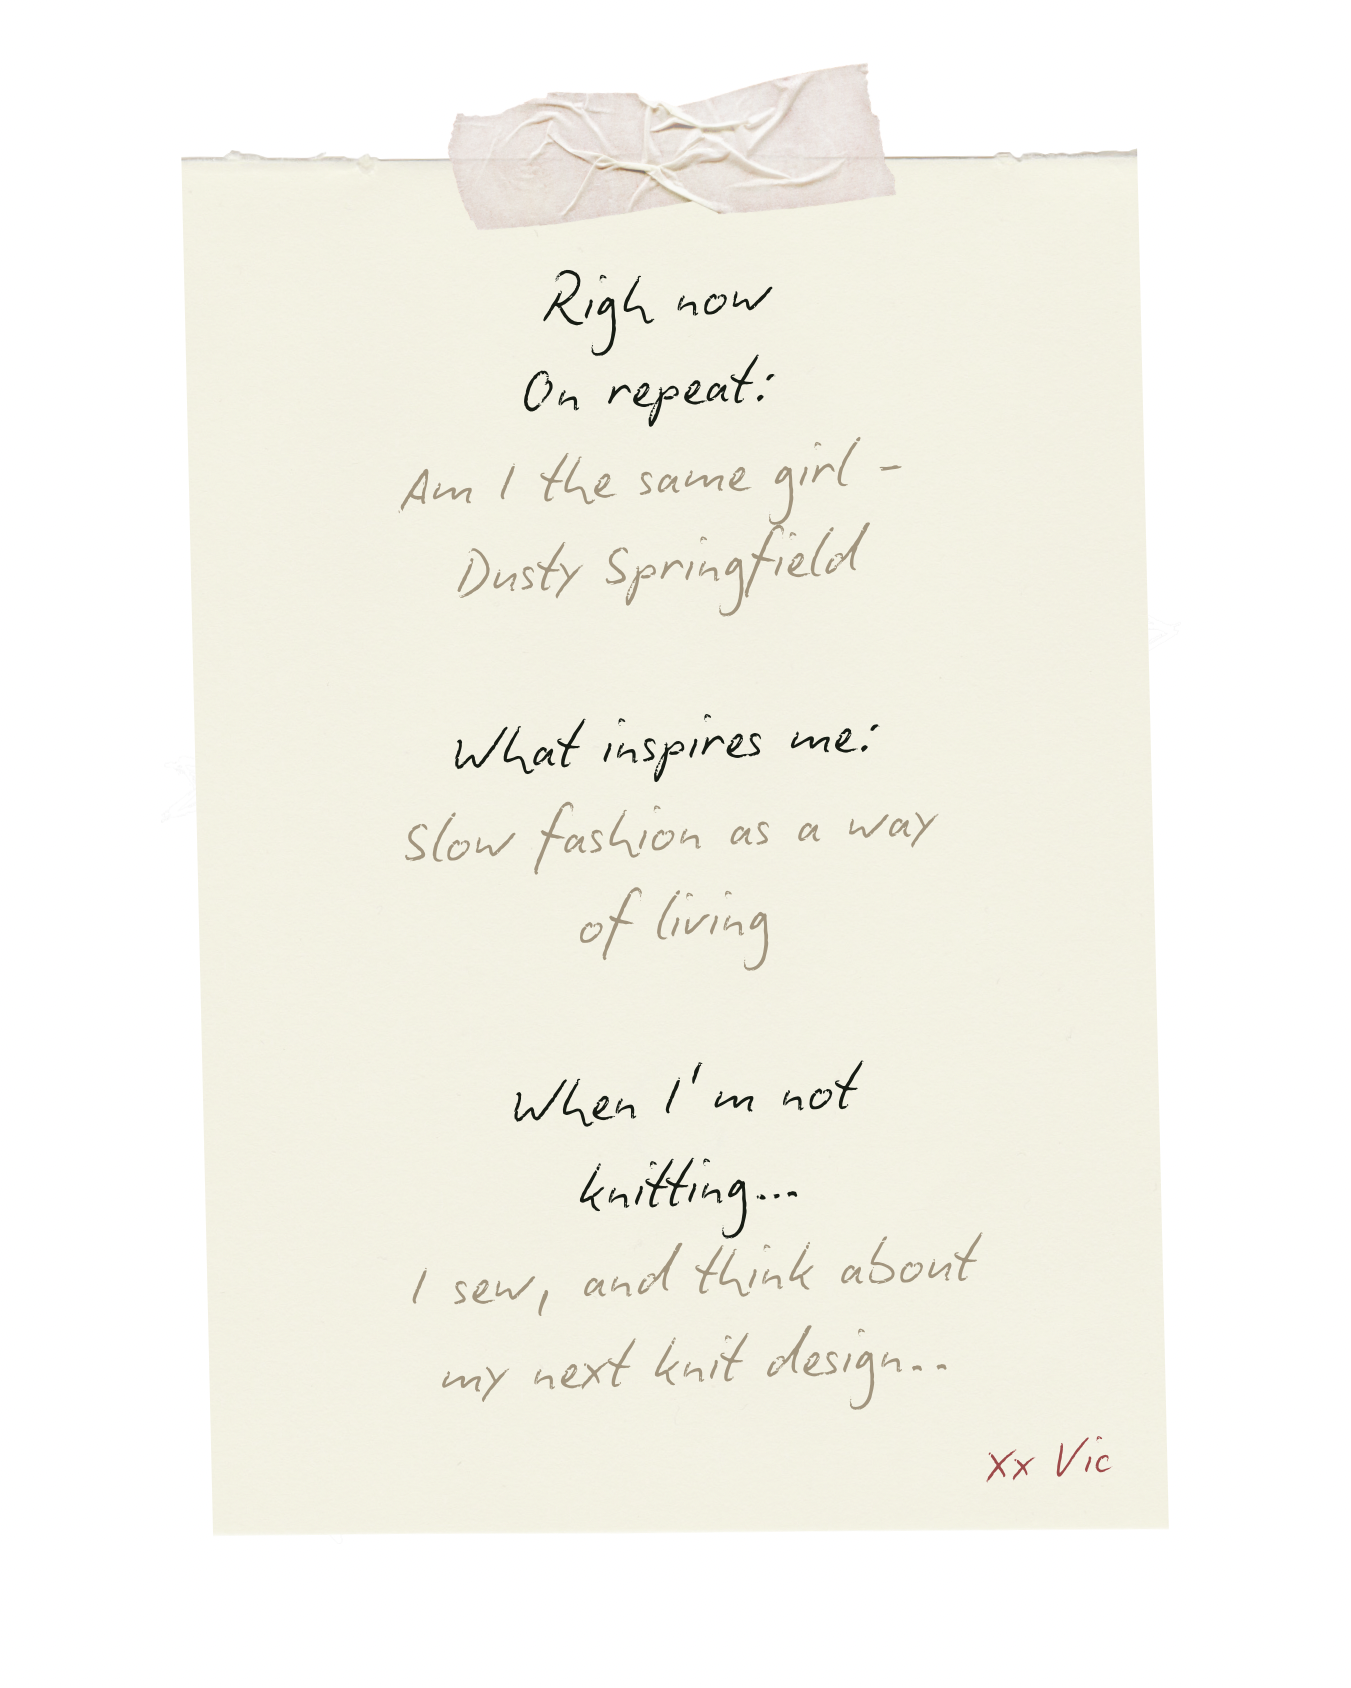 Righ now
On repeat:
Am I the same girl -
Dusty Springfield
What inspires me:
Slow fashion as a way
of living
When I'm not
knitting...
I sew, and think about
my next knit design..
Xx Vic